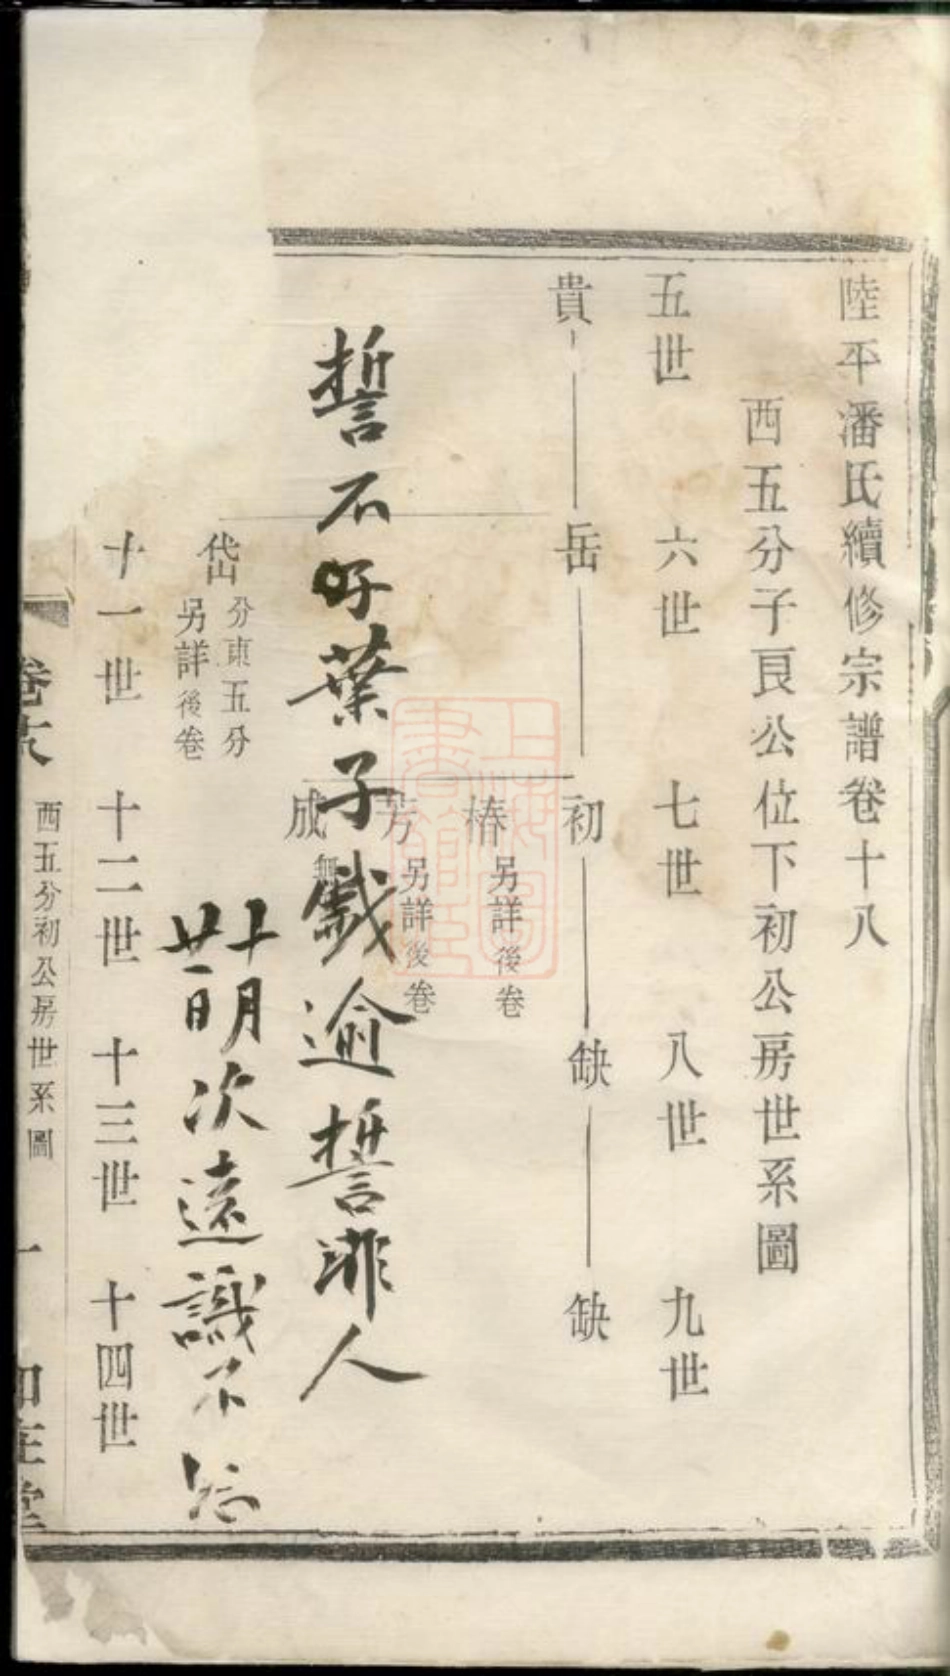 陸平潘氏續修宗譜卷十八
西五分子艮公位下初公房世系圖
五世 六世 七世 八世 九世
貴 岳 初 缺 缺
椿 另詳後卷
芳 另詳後卷
成
誓不好葉子戲逾誓非人
岱 分東五分 另詳後卷
廿十一朋次遠識不忘
十一世 十二世 十三世 十四世
卷十八 西五分初公房世系圖 一
上海圖書館藏